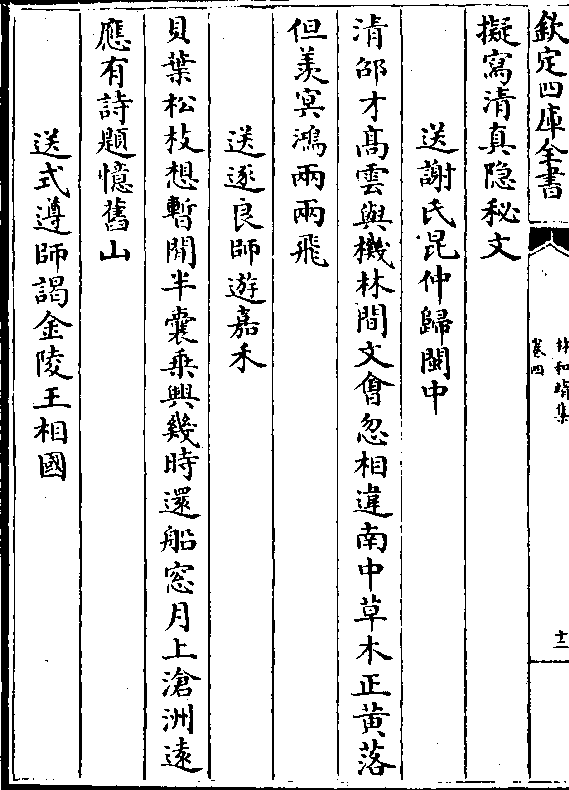 欽定四庫全書
林和靖集
卷四
十二
擬寫清真隐秘文
送謝氏昆仲歸閩中
清邵才髙雲與機林間文㑹忽相違南中草木正黄落
但羨㝠鴻兩兩飛
送遂良師遊嘉禾
貝葉松枝想暫閒半囊乗興幾時還船窓月上滄洲逺
應有詩題憶舊山
送式遵師謁金陵王相國